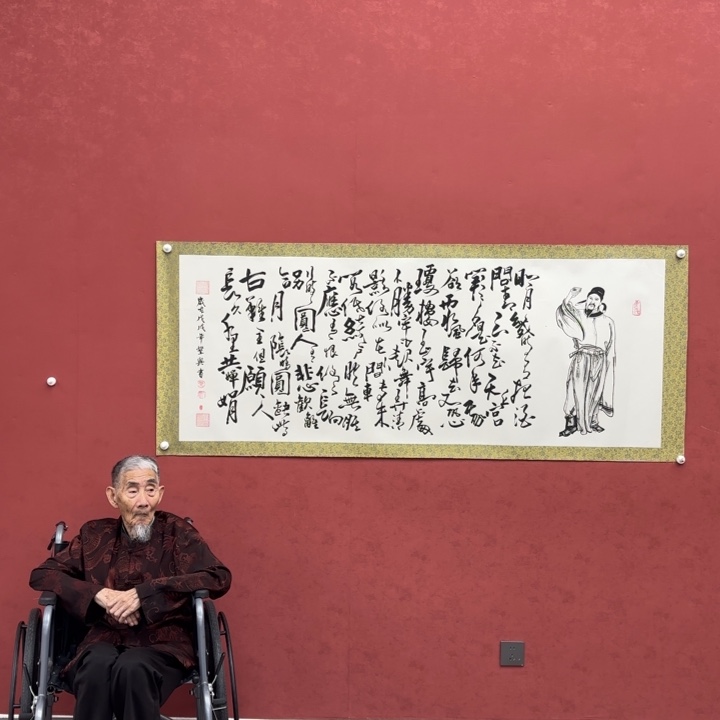 明月幾時有把酒
問青天不知天宮
闕今夕是何年我
欲乘風歸去又恐
瓊樓玉宇高處
不勝寒起舞弄清
影何似在人間轉朱
閣低綺戶照無眠
不應有恨何事長向
別時圓人有悲歡離
合月有陰晴圓缺此事
古難全但願人
長久千里共嬋娟
歲在戊戌年